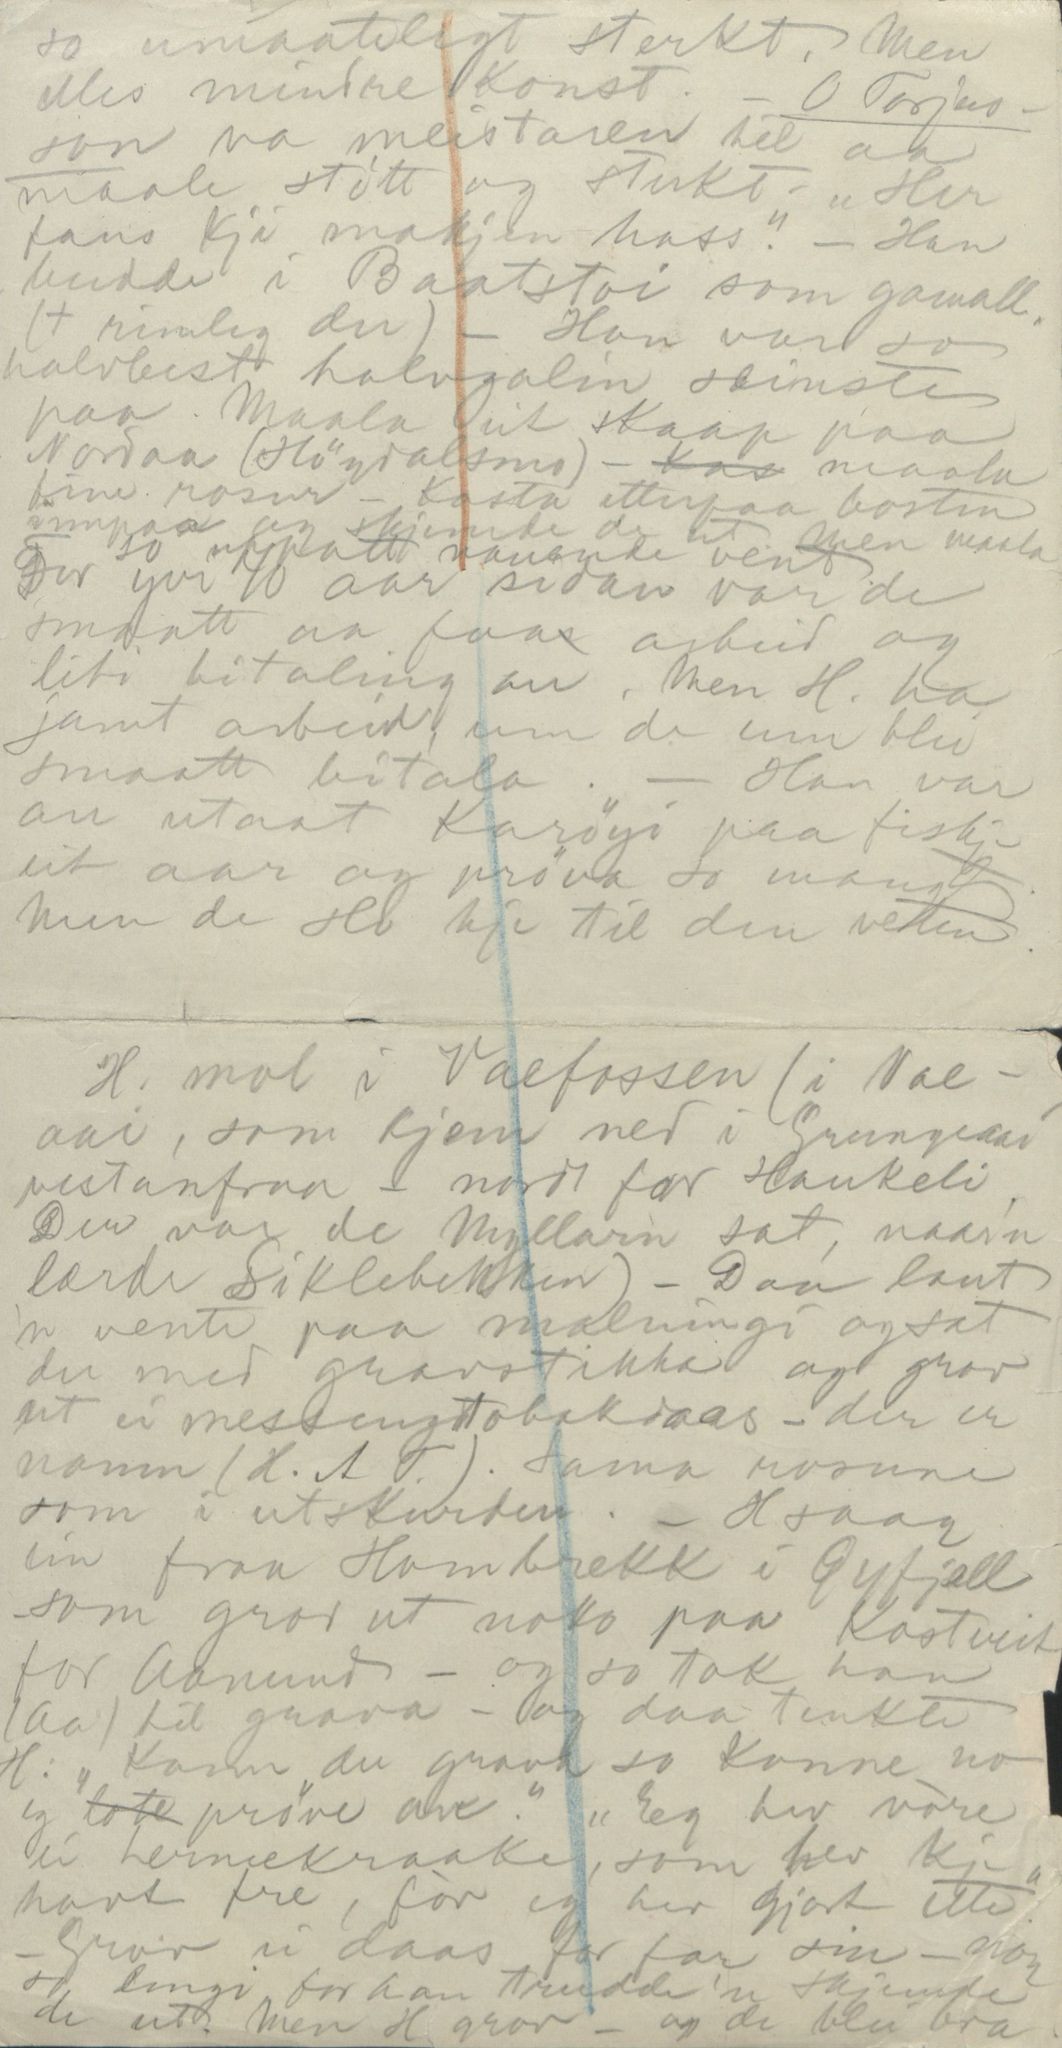 so umaateligt sterkt. Men
elles mindre Konst. — O Torjus-
son va meistaren til aa
maale stött og sterkt — „Her
fans kji makjen hass". — Han
budde i Baatstoi som gamall.
(† rimleg der) — Han var so
halvbeist halvgalin seinste
paa. Maala eit skaap paa
Nordaa (Högdalsmo) — Kas maala
fine rosur — Kasta etterpaa bosten
innpaa og skjemde de ut Men maala
so uppatt vent
Der yvi 40 aar sidan var de
smaatt aa faae arbeid og
liti bitaling au. Men H. ha
jamt arbeid, um de um blei
smaatt bitala. — Han var
au utaat Karöyi paa fiskje
eit aar og pröva so mangt.
Men de slo kje til den vetten.
H. mol i Vaefossen (i Vae-
aai, som kjem ned i Grungeaai
vestanfraa — nordt for Haukeli
Der var de Myllarin sat, naar'n
lærde Siklebekken) — Daa laut
'n vente paa malningi og sat
der med gravstikka og grov
ut ei messingtobakdaas — der er
namn (H. A T.). Sama rosune
som i utskurden. — H saag
ein fraa Hombrekk i Öyfjell
som grov ut noko paa Kostveit
for Aanund — og so tok han
(Aa) til grava — og daa tenkte
H: „Kann du grava so Konne no
eg lote pröve au." „Eg hev vòre
ei hermekraake, som hev kji
havt fre, fòr eg hev gjort ette"
— Grov ei daas for far sin — nog
so lengi for han trudde 'n skjemde
de ut. Men H grov — og de blei bra.